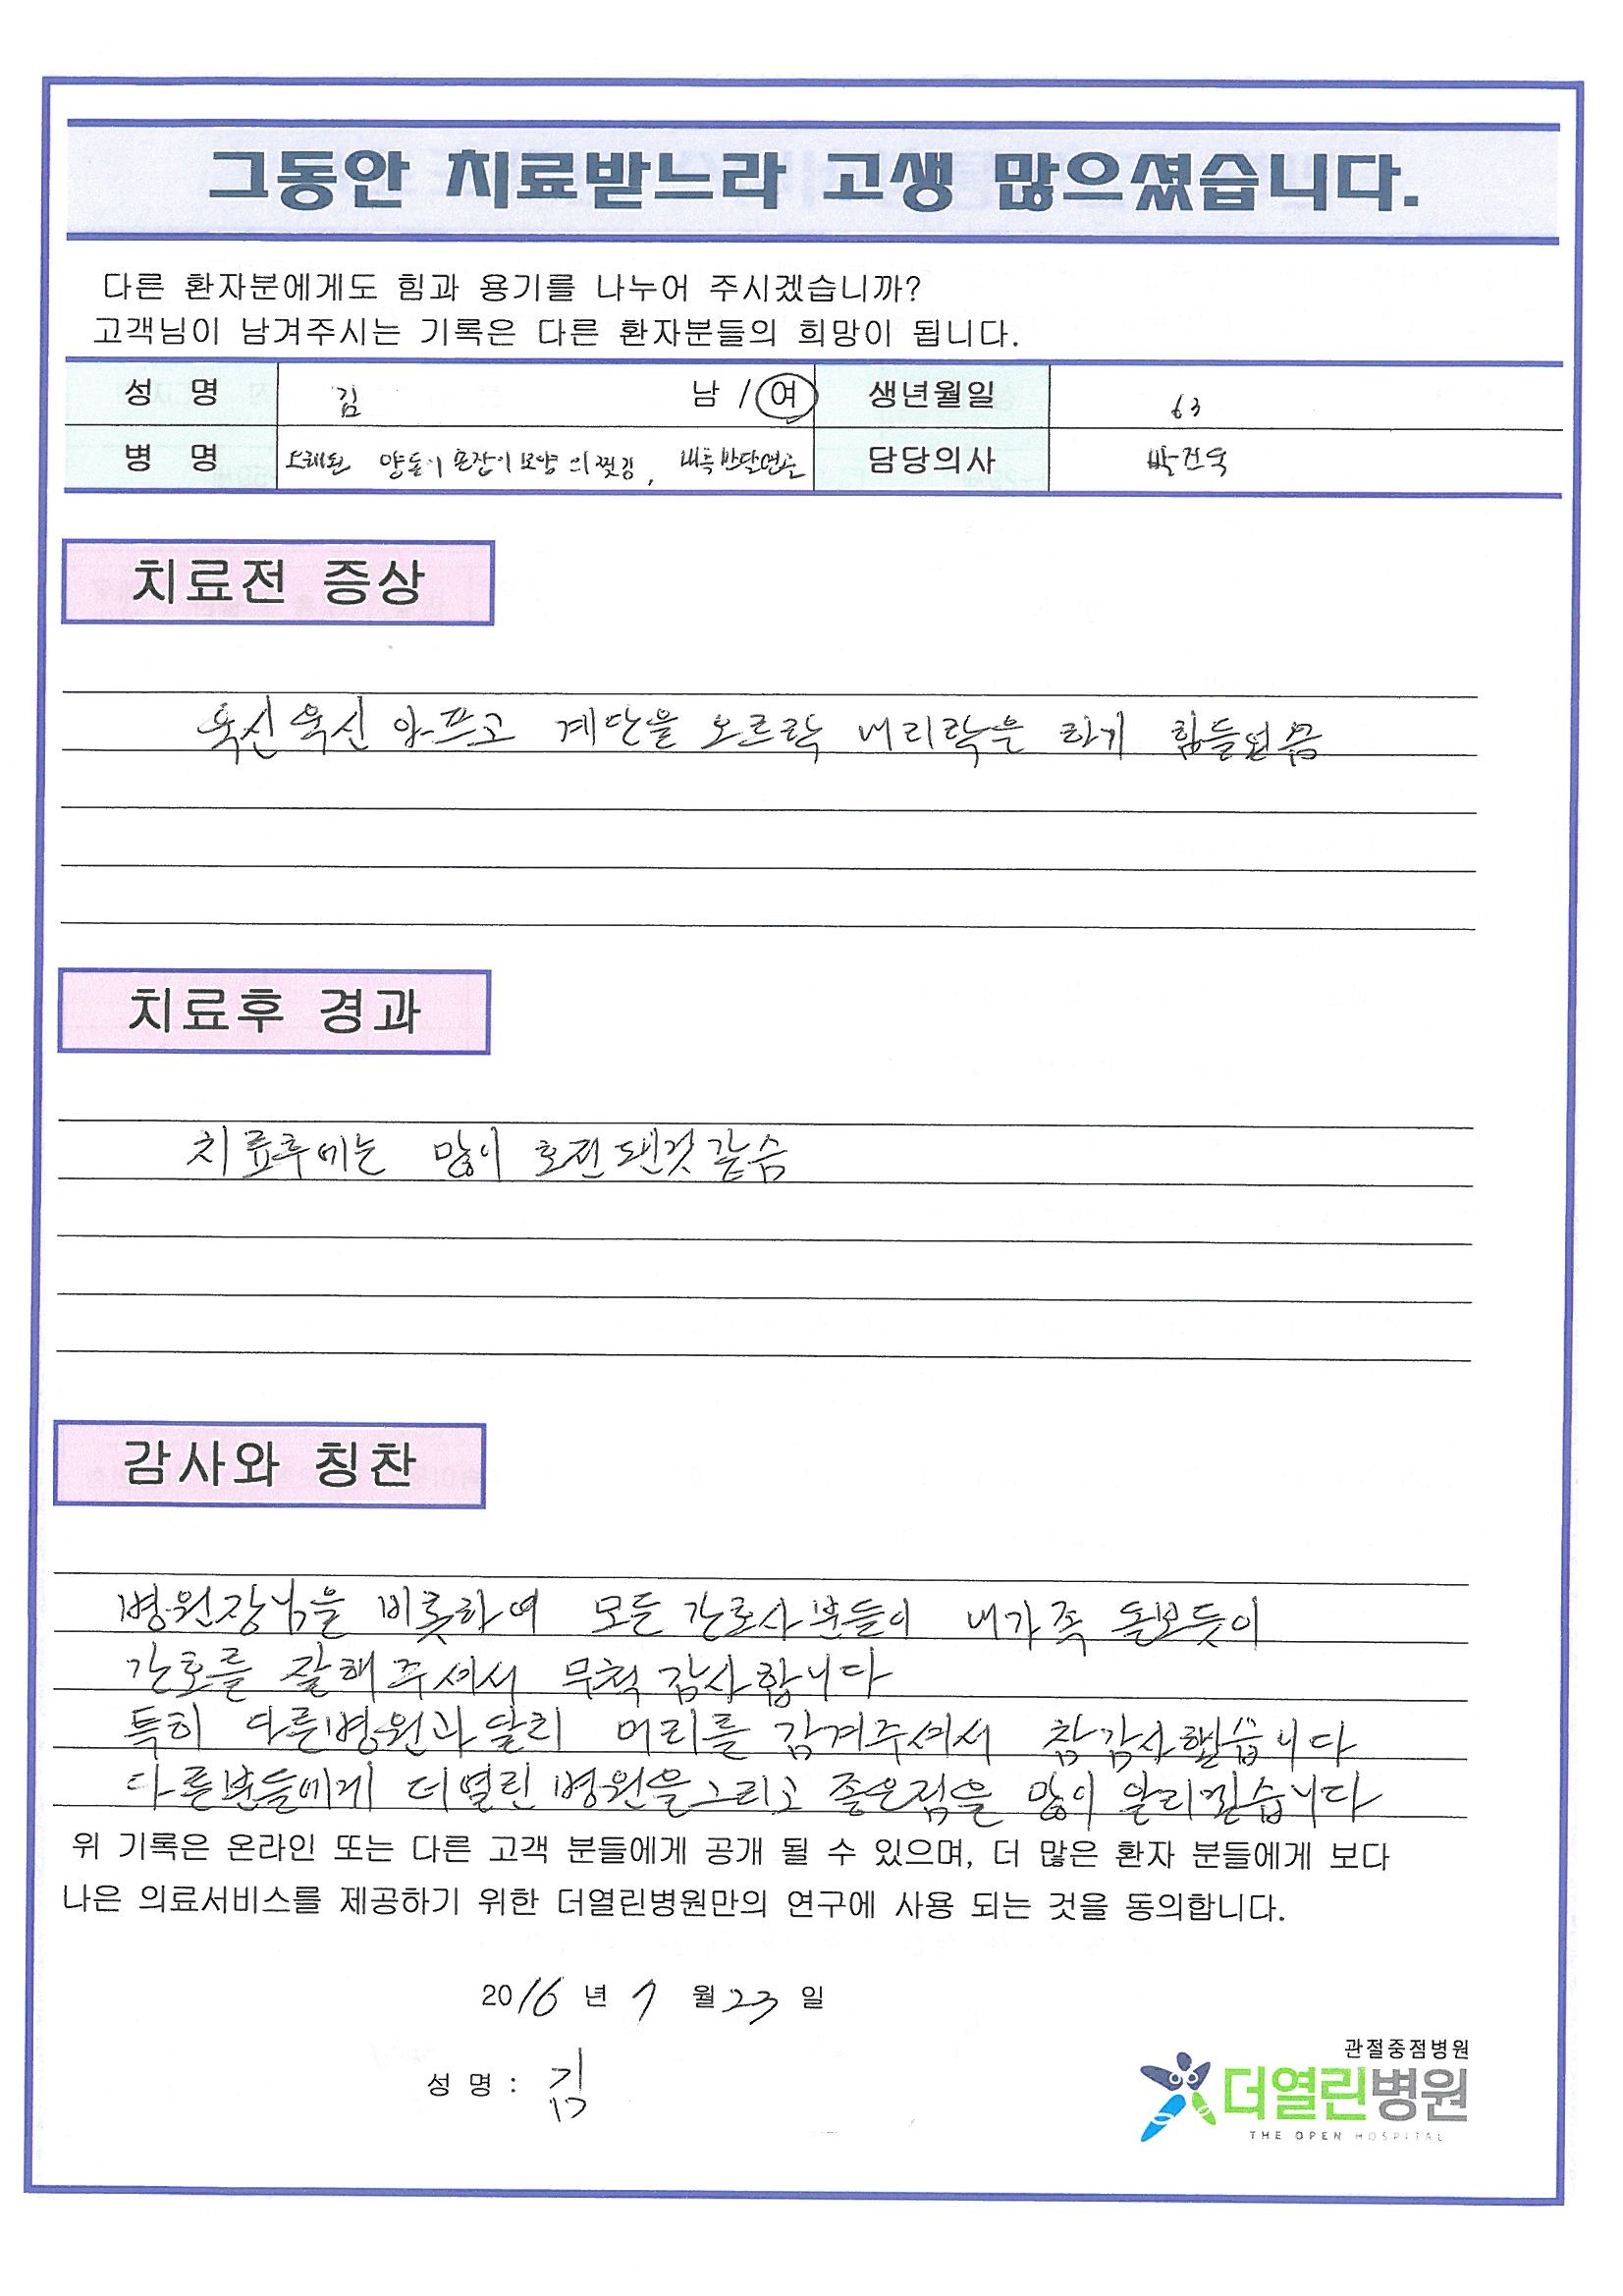 그동안 치료받느라 고생 많으셨습니다.
다른 환자분에게도 힘과 용기를 나누어 주시겠습니까?
고객님이 남겨주시는 기록은 다른 환자분들의 희망이 됩니다.
성 명 김 남 / 여 생년월일 63
병 명 오래된 양동이 손잡이 모양의 찢김, 내측 반달연골 담당의사 박건욱
치료전 증상
욱신욱신 아프고 계단을 오르락 내리락을 하기 힘들었음
치료후 경과
치료후에는 많이 호전됀것같슴
감사와 칭찬
병원장님을 비롯하여 모든 간호사분들이 내가족 돌보듯이
간호를 잘해주셔서 무척 감사합니다
특히 다른병원과달리 머리를 감겨주셔서 참감사했습니다
다른분들에게 더열린병원을그리고 좋은점을 많이 알리겠습니다
위 기록은 온라인 또는 다른 고객 분들에게 공개 될 수 있으며, 더 많은 환자 분들에게 보다
나은 의료서비스를 제공하기 위한 더열린병원만의 연구에 사용 되는 것을 동의합니다.
2016 년 7 월 23 일
성 명 : 김
관절중점병원
더열린병원
THE OPEN HOSPITAL